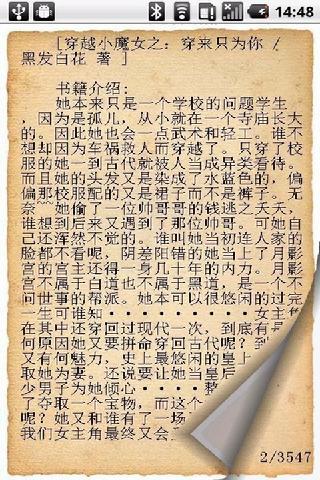 14:48
[穿越小魔女之：穿来只为你 /
黑发白花 著 ]
书籍介绍：
她本来只是一个学校的问题学生
，因为是孤儿，从小就在一个寺庙长大
的。因此她也会一点武术和轻工。谁不
想却因为车祸救人而穿越了。只穿了校
服的她一到古代就被人当成异类看待。
而且她的头发又是染成了水蓝色的，偏
偏那校服配的又是裙子而不是裤子。无
奈~~她偷了一位帅哥哥的钱逃之夭夭，
谁想到后来又遇到了那位帅哥。可她自
己还浑然不觉的。谁叫她当初连人家的
脸都不看呢，阴差阳错的她当上了月影
宫的宫主还得一身几十年的内力。月影
宫不属于白道也不属于黑道，是一个不
问世事的帮派。她本可以很悠闲的过完
一生可谁知·········女主角
在其中还穿回过现代一次，到底有是
何原因她又要拼命穿回古代呢？到
又有何魅力，史上最悠闲的皇上
取她为妻。还说要让她当皇后
少男子为她倾心·····整
了夺取一个宝物，而这个
呢？她又和谁有了一场
我们女主角最终又会
2/3547